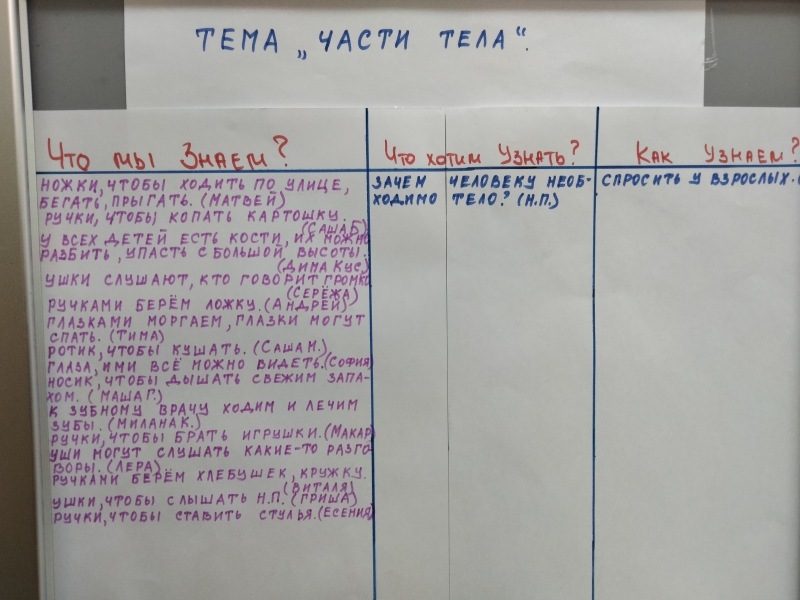 ТЕМА „ЧАСТИ ТЕЛА“.
Что мы Знаем?
НОЖКИ, ЧТОБЫ ХОДИТЬ ПО УЛИЦЕ,
БЕГАТЬ, ПРЫГАТЬ. (МАТВЕЙ)
РУЧКИ, ЧТОБЫ КОПАТЬ КАРТОШКУ.
(САША Б)
У ВСЕХ ДЕТЕЙ ЕСТЬ КОСТИ, ИХ МОЖНО
РАЗБИТЬ, УПАСТЬ С БОЛЬШОЙ ВЫСОТЫ.
(ДИМА КУС.)
УШКИ СЛУШАЮТ, КТО ГОВОРИТ ГРОМКО
(СЕРЁЖА)
РУЧКАМИ БЕРЁМ ЛОЖКУ. (АНДРЕЙ)
ГЛАЗКАМИ МОРГАЕМ, ГЛАЗКИ МОГУТ
СПАТЬ. (ТИМА)
РОТИК, ЧТОБЫ КУШАТЬ. (САША М.)
ГЛАЗА, ИМИ ВСЁ МОЖНО ВИДЕТЬ. (СОФИЯ)
НОСИК, ЧТОБЫ ДЫШАТЬ СВЕЖИМ ЗАПА-
ХОМ. (МАША Г.)
К ЗУБНОМУ ВРАЧУ ХОДИМ И ЛЕЧИМ
ЗУБЫ. (МИЛАНА К.)
РУЧКИ, ЧТОБЫ БРАТЬ ИГРУШКИ. (МАКАР)
УШИ МОГУТ СЛУШАТЬ КАКИЕ-ТО РАЗГО-
ВОРЫ. (ЛЕРА)
РУЧКАМИ БЕРЁМ ХЛЕБУШЕК, КРУЖКУ.
(ВИТАЛЯ)
УШКИ, ЧТОБЫ СЛЫШАТЬ Н.П. (ГРИША)
РУЧКИ, ЧТОБЫ СТАВИТЬ СТУЛЬЯ. (ЕСЕНИЯ)
Что хотим Узнать?
ЗАЧЕМ ЧЕЛОВЕКУ НЕОБ-
ХОДИМО ТЕЛО? (Н.П.)
Как Узнаем?
СПРОСИТЬ У ВЗРОСЛЫХ.